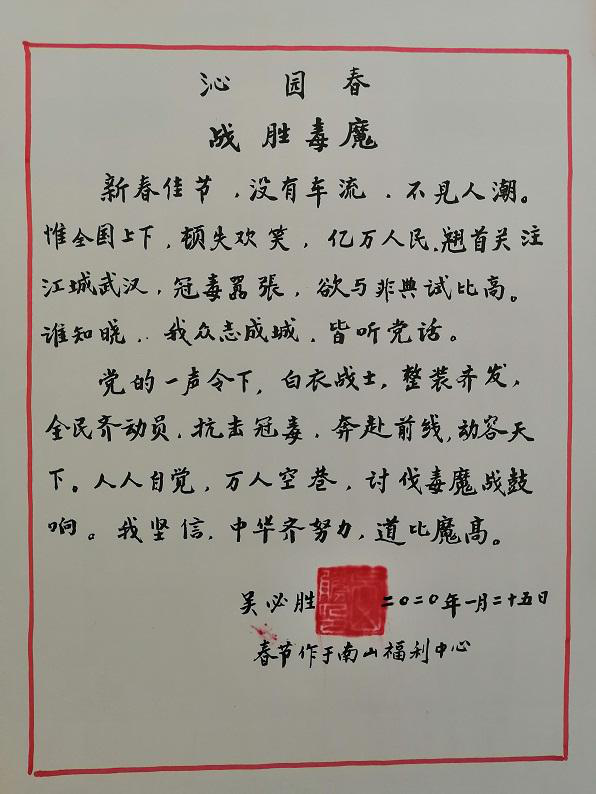 沁园春
战胜毒魔
新春佳节，没有车流，不见人潮。
惟全国上下，顿失欢笑，亿万人民，翘首关注
江城武汉，冠毒嚣張，欲与非典试比高。
谁知晓，我众志成城，皆听党话。
党的一声令下，白衣战士，整装齐发，
全民齐动员，抗击冠毒，奔赴前线，动容天
下。人人自觉，万人空巷，讨伐毒魔战鼓
响。我坚信，中华齐努力，道比魔高。
吴必胜 二〇二〇年一月二十五日
春节作于南山福利中心